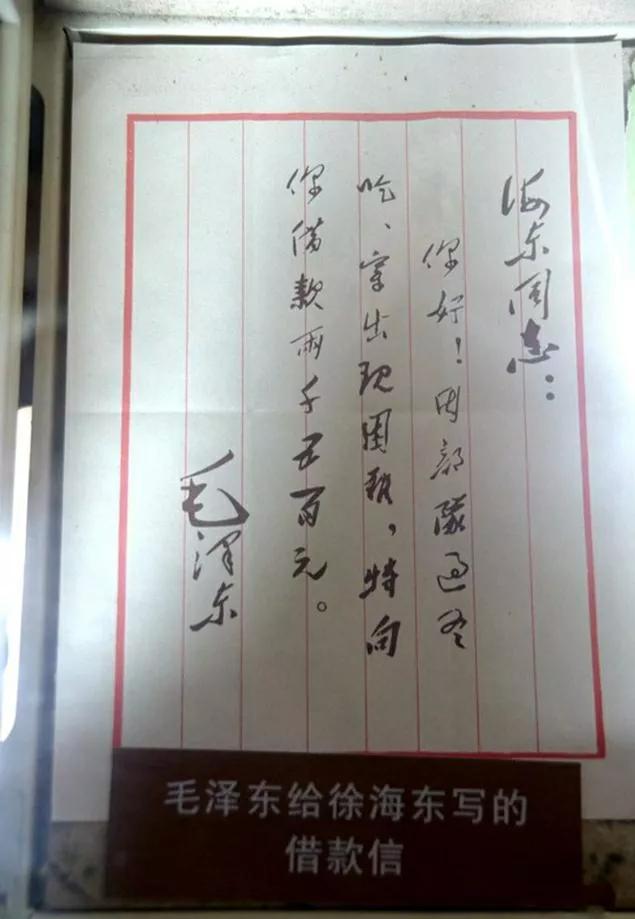 海东同志：
你好！因部隊过冬
吃、穿出现困难，特向
你借款两千五百元。
毛泽东
毛泽东给徐海东写的
借款信